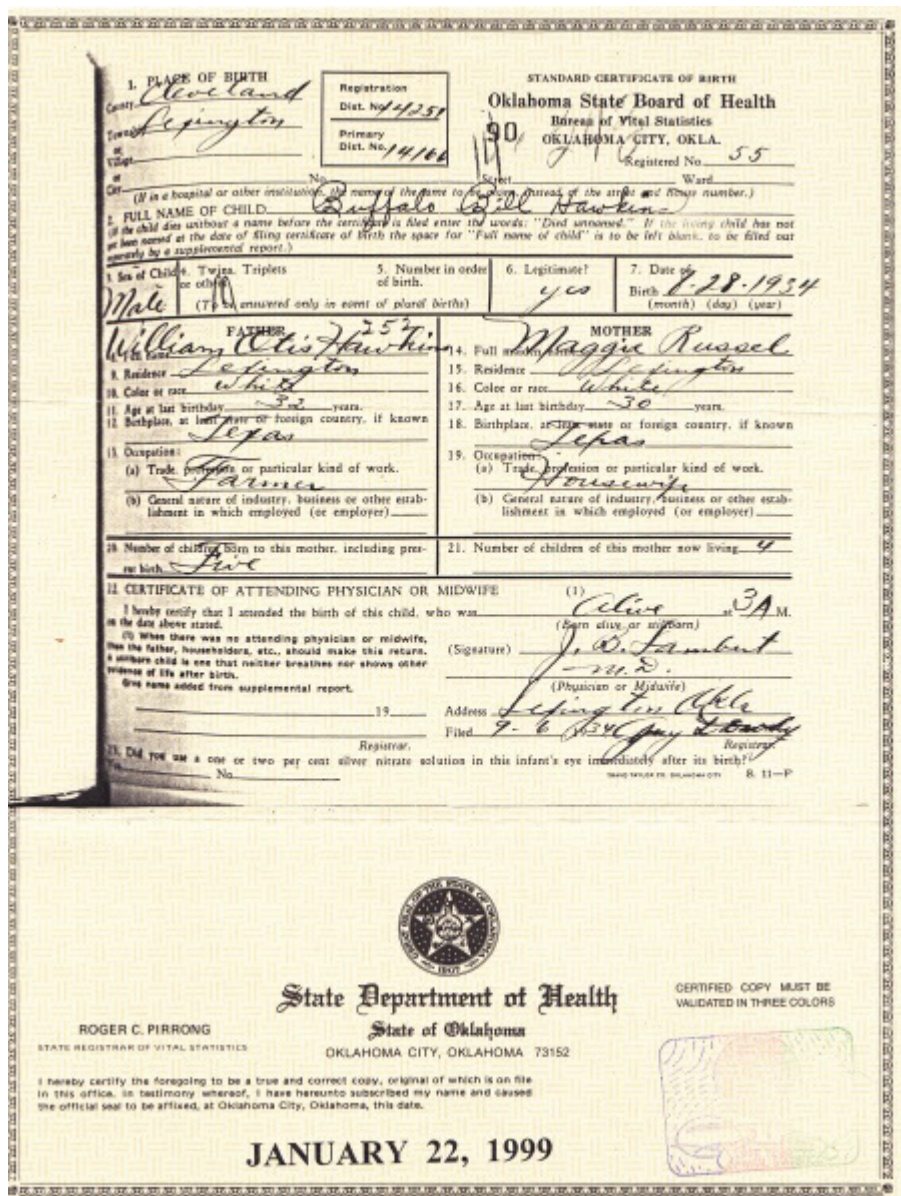 1. PLACE OF BIRTH
County Cleveland
Township Lexington
or
Village
or
City
Registration
Dist. No. 14251
Primary
Dist. No. 14166
STANDARD CERTIFICATE OF BIRTH
Oklahoma State Board of Health
Bureau of Vital Statistics
OKLAHOMA CITY, OKLA.
90
Registered No. 55
No. Street Ward
(If in a hospital or other institution, the name of the same to be given instead of the street and house number.)
2. FULL NAME OF CHILD Buffalo Bill Hawkins
(If the child dies without a name before the certificate is filed enter the words: "Died unnamed." If the living child has not
yet been named at the date of filing certificate of birth the space for "Full name of child" is to be left blank, to be filled out
by a supplemental report.)
3. Sex of Child Male
4. Twins, Triplets
or other
5. Number in order
of birth.
(To be answered only in event of plural births)
6. Legitimate?
yes
7. Date of
Birth 8-28-1934
(month) (day) (year)
FATHER 252
William Otis Hawkins
8. Full name
9. Residence Lexington
10. Color or race White
11. Age at last birthday 32 years.
12. Birthplace, at least state or foreign country, if known
Texas
13. Occupation:
(a) Trade, profession or particular kind of work.
Farmer
(b) General nature of industry, business or other estab-
lishment in which employed (or employer)
MOTHER
14. Full maiden name Maggie Russel
15. Residence Lexington
16. Color or race White
17. Age at last birthday 30 years.
18. Birthplace, at least state or foreign country, if known
Texas
19. Occupation:
(a) Trade, profession or particular kind of work.
Housewife
(b) General nature of industry, business or other estab-
lishment in which employed (or employer)
20. Number of children born to this mother, including pres-
ent birth. Five
21. Number of children of this mother now living 4
22. CERTIFICATE OF ATTENDING PHYSICIAN OR MIDWIFE (1)
I hereby certify that I attended the birth of this child, who was Alive at 3A M.
on the date above stated. (Born alive or stillborn)
(1) When there was no attending physician or midwife,
then the father, householders, etc., should make this return.
A stillborn child is one that neither breathes nor shows other
evidence of life after birth.
Give name added from supplemental report.
19
Registrar.
(Signature) J. B. Lambert
M.D.
(Physician or Midwife)
Address Lexington Okla
Filed 9-6 1934 Dowdy
Registrar
23. Did you use a one or two per cent silver nitrate solution in this infant's eye immediately after its birth?
Yes No
8. 11—P
GREAT SEAL OF THE STATE OF OKLAHOMA
1907
State Department of Health
State of Oklahoma
OKLAHOMA CITY, OKLAHOMA 73152
ROGER C. PIRRONG
STATE REGISTRAR OF VITAL STATISTICS
CERTIFIED COPY MUST BE
VALIDATED IN THREE COLORS
I hereby certify the foregoing to be a true and correct copy, original of which is on file
in this office. In testimony whereof, I have hereunto subscribed my name and caused
the official seal to be affixed, at Oklahoma City, Oklahoma, this date.
JANUARY 22, 1999